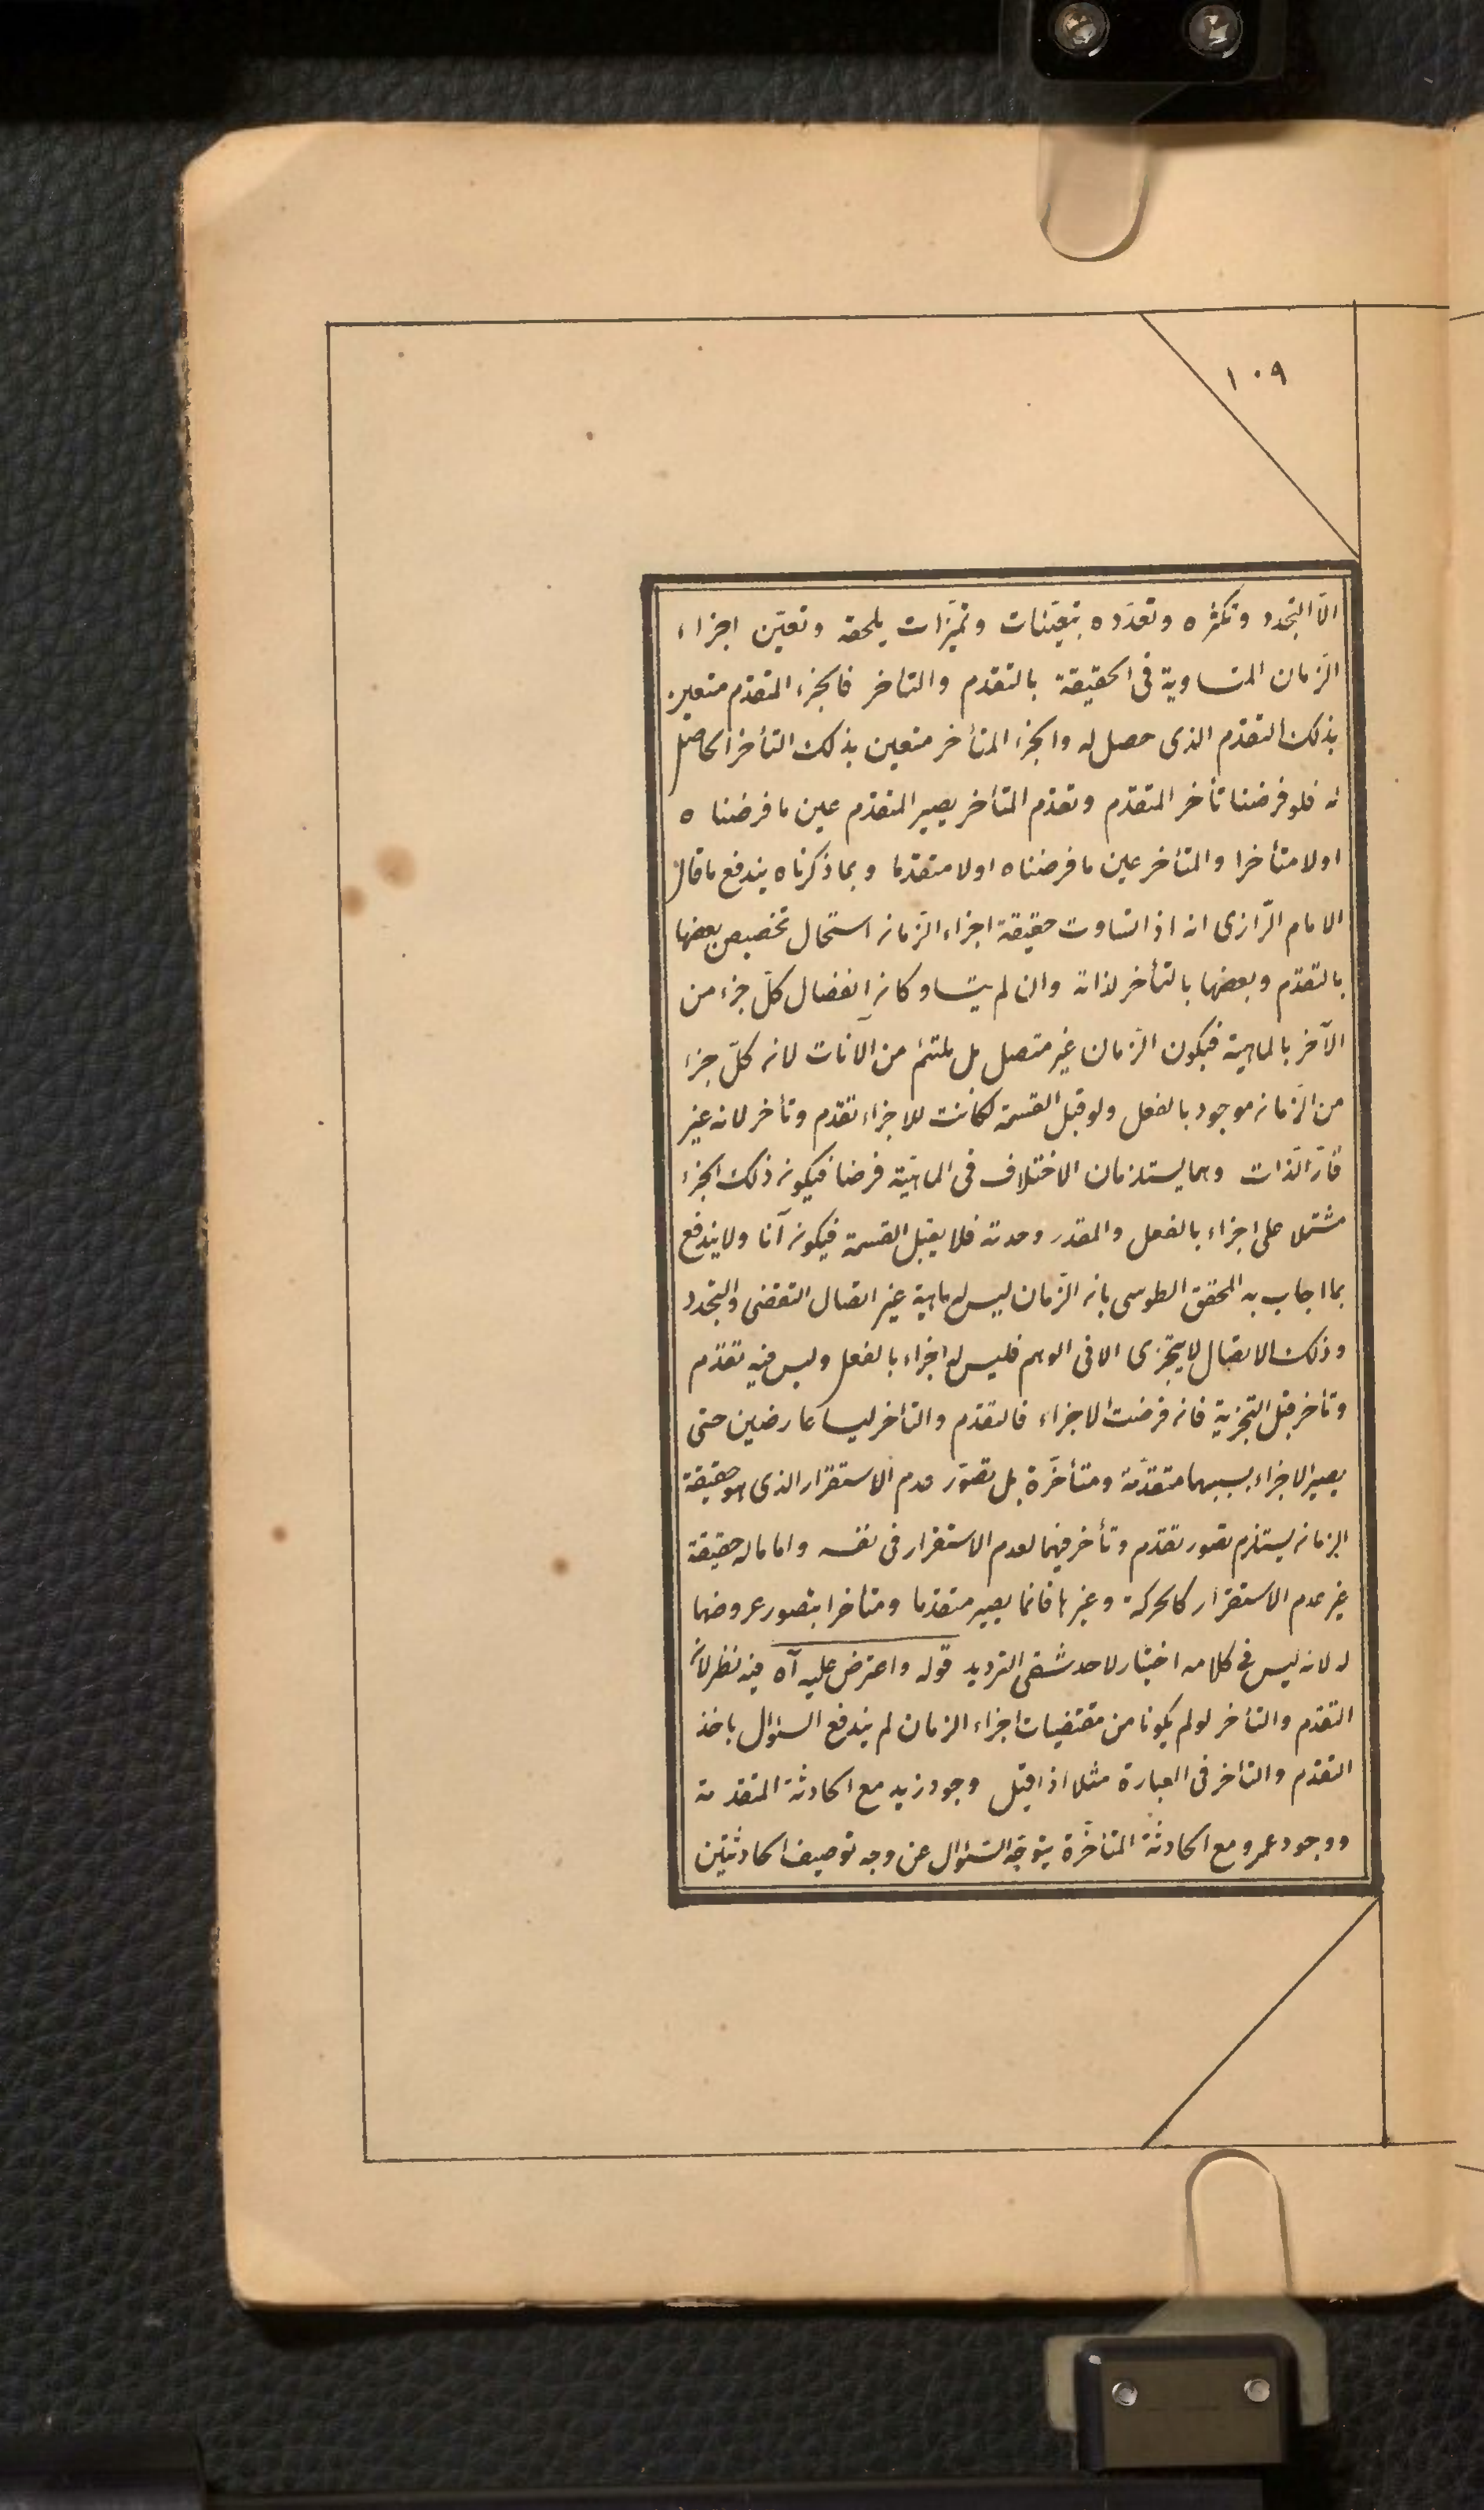 ١٠٩
الّا التجدد وتكثره وتعدّده بتعيّنات وتميّزات يلحقه وتعيّن اجزاء
الزّمان المتساوية فى الحقيقة بالتقدم والتأخر فالجزء المتقدّم متعين
بذلك التقدّم الذى حصل له والجزء المتأخر متعين بذلك التأخر الحاصل
له فلو فرضنا تأخر المتقدّم وتقدّم المتأخر يصير المتقدّم عين ما فرضناه
اولا متأخرا والمتأخر عين ما فرضناه اولا متقدما وبما ذكرناه يندفع ما قال
الامام الرّازى انه اذا تساوت حقيقة اجزاء الزّمان استحال تخصيص بعضها
بالتقدّم وبعضها بالتأخر لذاته وان لم يتساو كان انفصال كلّ جزء من
الآخر بالماهية فيكون الزّمان غير متصل بل ملتئم من الآنات لان كلّ جزء
من الزّمان موجود بالفعل ولو قبل القسمة لكانت للاجزاء تقدم وتأخر لانه غير
قارّ الذات وهما يستلزمان الاختلاف فى الماهيّة فرضا فيكون ذلك الجزء
مشتملا على اجزاء بالفعل والمقدر وحدته فلا يقبل القسمة فيكون آنا ولا يندفع
بما اجاب به المحقق الطوسى بان الزّمان ليس له ماهية غير اتصال التقضى والتجدد
وذلك الاتصال لا يتجزى الا فى الوهم فليس له اجزاء بالفعل وليس فيه تقدّم
وتأخر قبل التجزية فان فرضت الاجزاء فالتقدّم والتأخر ليسا عارضين حتى
يصير الاجزاء بسببهما متقدّمة ومتأخّرة بل تصوّر عدم الاستقرار الذى هو حقيقة
الزمان يستلزم تصور تقدّم وتأخر فيهما لعدم الاستقرار فى نفسه واما ماله حقيقة
غير عدم الاستقرار كالحركة وغيرها فانما يصير متقدما ومتأخرا بتصور عروضهما
له لانه ليس فى كلامه اختيار لاحد شقى الترديد قوله واعترض عليه آه فيه نظر لانّ
التقدّم والتأخر لو لم يكونا من مقتضيات اجزاء الزمان لم يندفع السئوال باخذ
التقدّم والتأخر فى العبارة مثلا اذا قيل وجود زيد مع الحادثة المتقدمة
ووجود عمرو مع الحادثة المتأخّرة يتوجّه السّئوال عن وجه توصيف الحادثتين